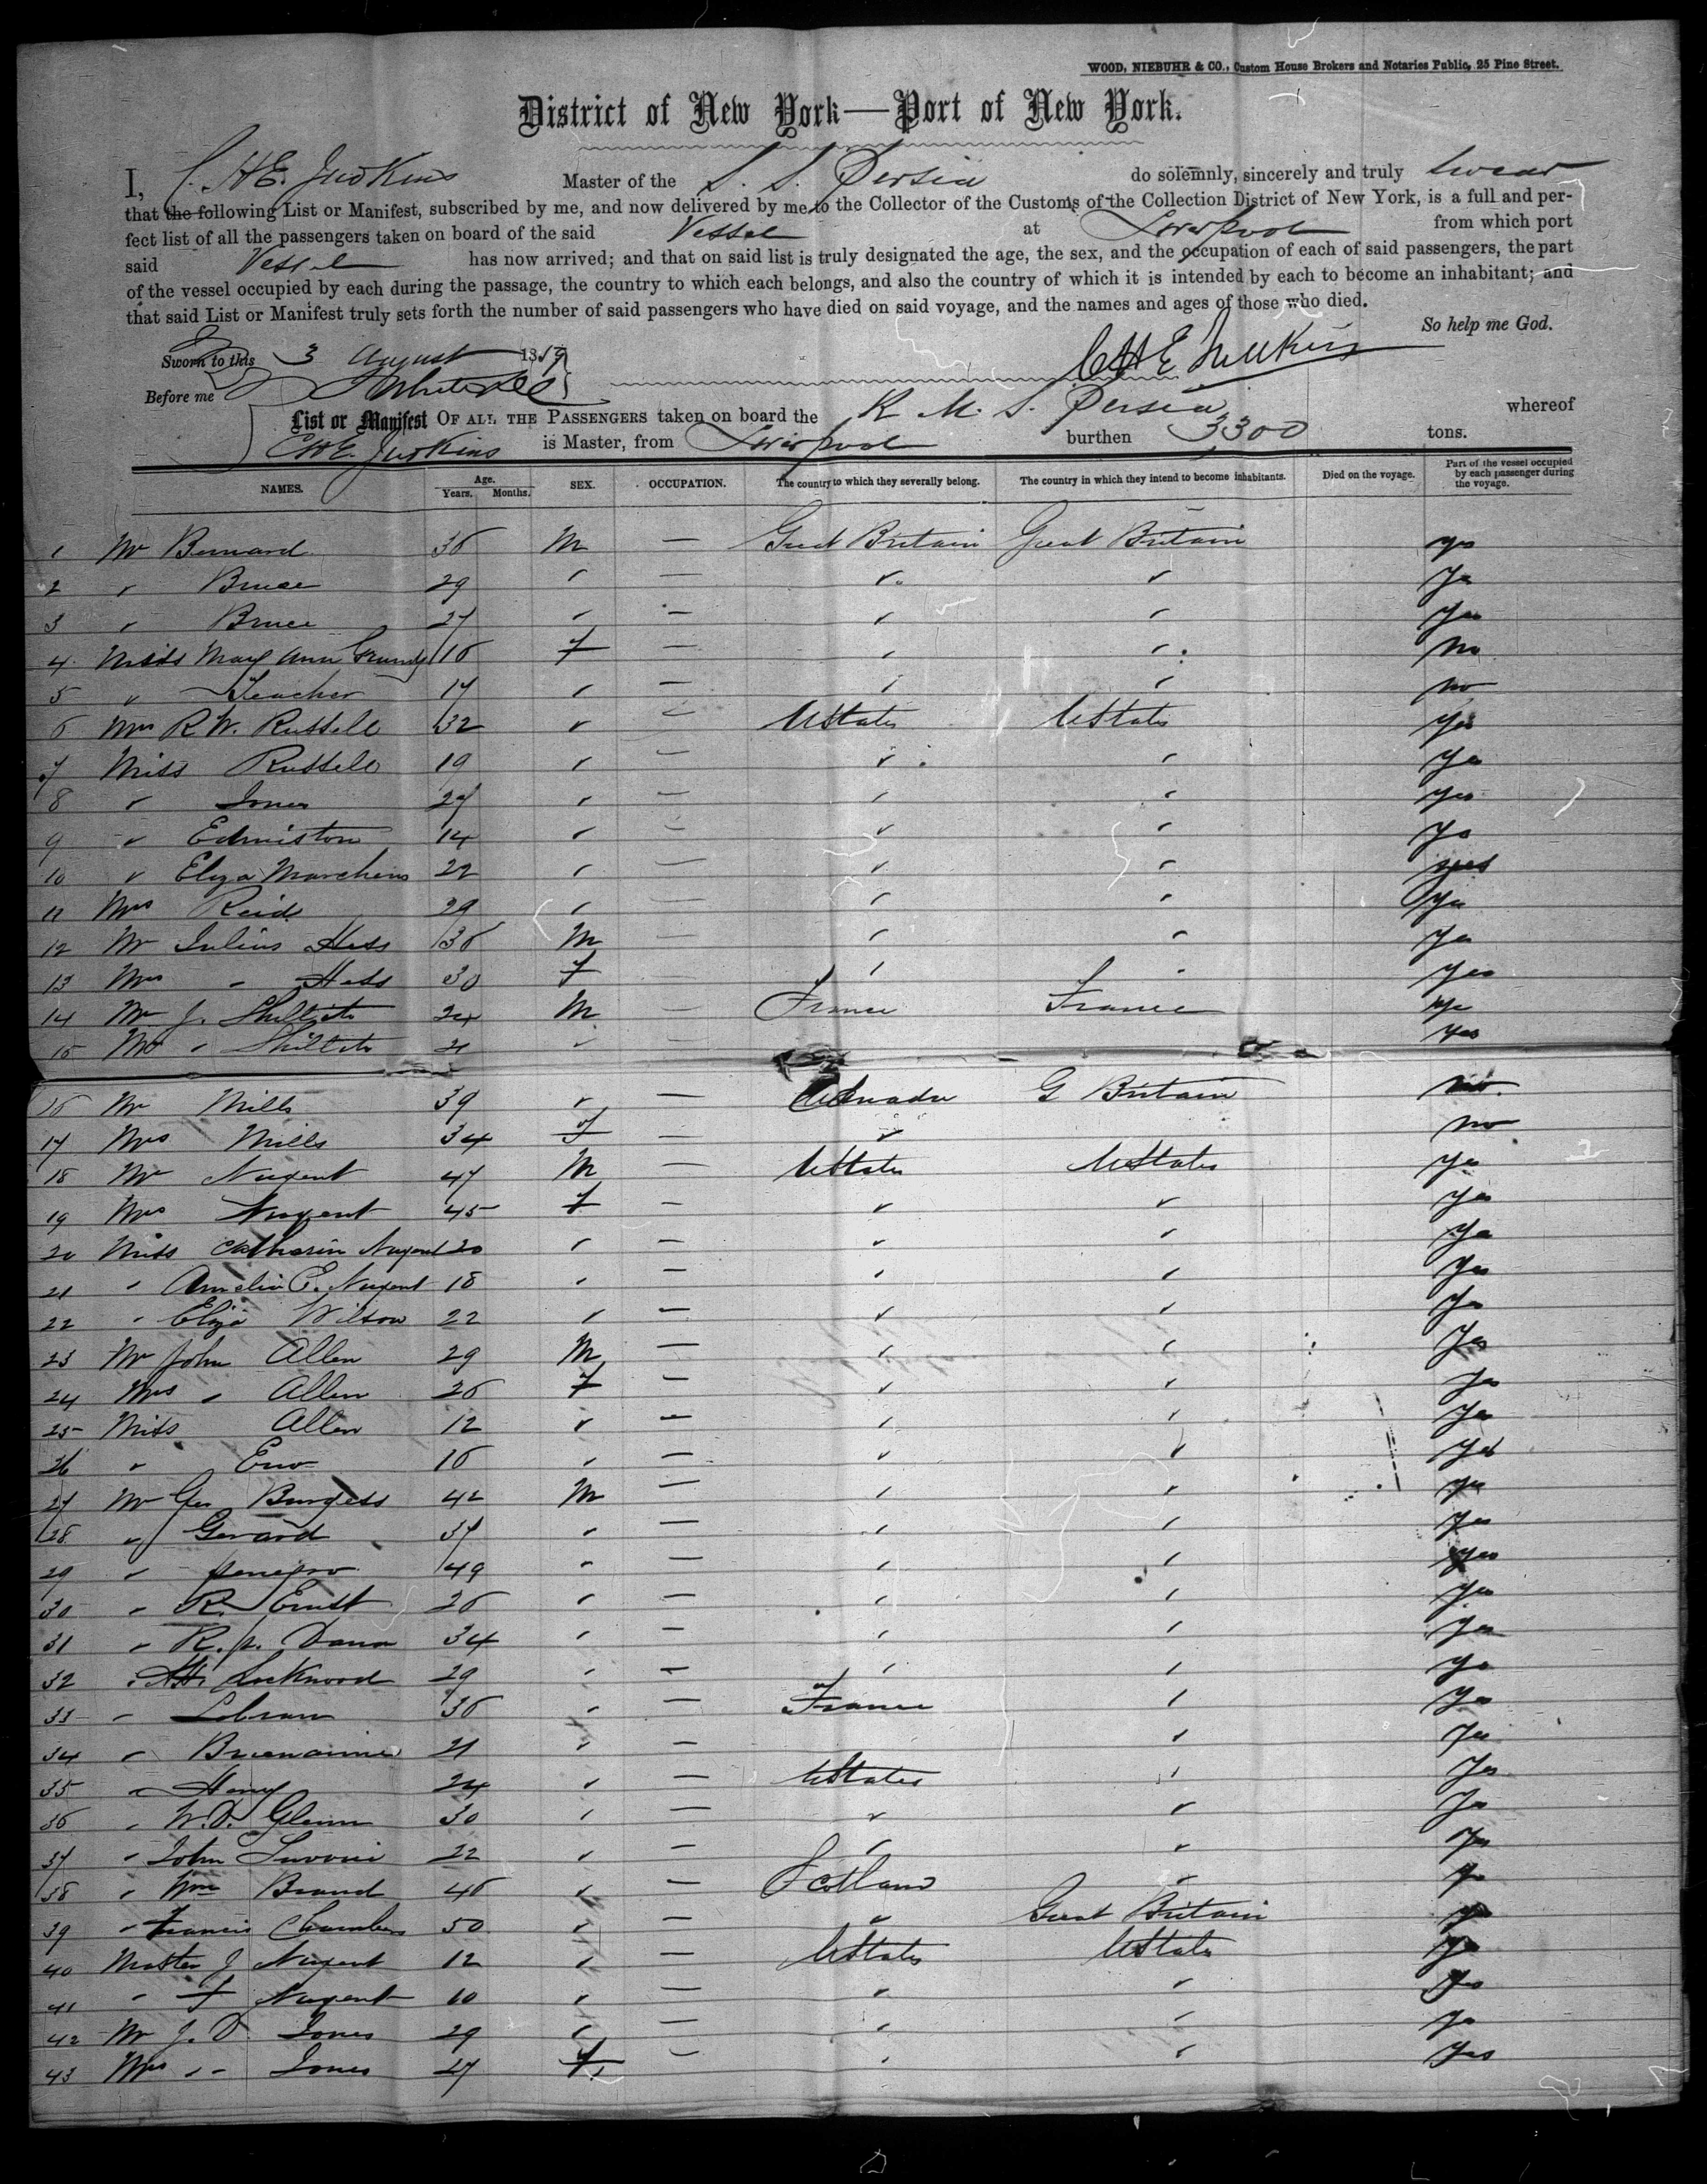 WOOD, NIEBUHR & CO., Custom House Brokers and Notaries Public, 25 Pine Street.
District of New York—Port of New York.
I, C. H. E. Judkins Master of the S. S. Persia do solemnly, sincerely and truly swear
that the following List or Manifest, subscribed by me, and now delivered by me to the Collector of the Customs of the Collection District of New York, is a full and per-
fect list of all the passengers taken on board of the said Vessel at Liverpool from which port
said Vessel has now arrived; and that on said list is truly designated the age, the sex, and the occupation of each of said passengers, the part
of the vessel occupied by each during the passage, the country to which each belongs, and also the country of which it is intended by each to become an inhabitant; and
that said List or Manifest truly sets forth the number of said passengers who have died on said voyage, and the names and ages of those who died.
So help me God.
Sworn to this 3 August 1859
CHE Judkins
Before me
List or Manifest OF ALL THE PASSENGERS taken on board the R. M. S. Persia whereof
CHE. Judkins is Master, from Liverpool burthen 3300 tons.
NAMES. Age. Years. Months. SEX. OCCUPATION. The country to which they severally belong. The country in which they intend to become inhabitants. Died on the voyage. Part of the vessel occupied by each passenger during the voyage.
1 Mr Bernard 36 M — Great Britain Great Britain yes
2 " Bruce 29 " — " " Yes
3 " Bruce 27 " — " " Yes
4 Miss Mary Ann Grundy 16 F — " " No
5 " Teacher 17 " — " " no
6 Mrs R. W. Russell 32 " — UStates UStates Yes
7 Miss Russell 19 " — " " Yes
8 " Jones 27 " — " " Yes
9 " Edmiston 14 " — " " Yes
10 " Eliza 22 " — " " yes
11 Mrs Reid 29 " — " " Yes
12 Mr Julius Hess 36 M — " " Yes
13 Mrs " Hess 30 F — " " Yes
14 Mr J. 24 M — France France Yes
15 " 21 " — Yes
16 Mr Mills 39 " — Canada G Britain no
17 Mrs Mills 34 F — " no
18 Mr Nugent 47 M — UStates UStates Yes
19 Mrs Nugent 45 F — " " Yes
20 Miss Catharin Nugent 20 " — " " Yes
21 " Amelia E. Nugent 18 " — " " Yes
22 " Eliza Wilson 22 " — " " Yes
23 Mr John Allen 29 M — " " Yes
24 Mrs " Allen 26 F — " " Yes
25 Miss Allen 12 " — " " Yes
26 " Eno 16 " — " " Yes
27 Mr Geo Burgess 42 M — " " Yes
28 " Gerard 37 " — " " Yes
29 " 49 " — " " Yes
30 " R. Ernst 26 " — " " Yes
31 " R. p. Dana 34 " — " " Yes
32 " Lockwood 29 " — " " Yes
33 " 36 " — France " Yes
34 " 21 " — " Yes
35 " 24 " — UStates " Yes
36 " W. D. Glenn 30 " — " " Yes
37 " John 22 " — " " Yes
38 " Wm Brand 46 " — Scotland " Yes
39 " Francis Chambers 50 " — " Great Britain Yes
40 Master J Nugent 12 " — UStates UStates Yes
41 " F Nugent 10 " — " " Yes
42 Mr J. D. Jones 29 " — " " Yes
43 Mrs " Jones 27 F. — " " Yes